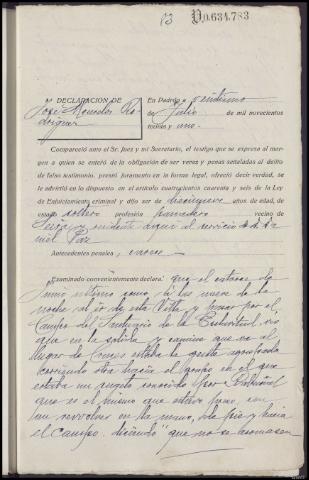 13
D.634,783
DECLARACIÓN DE
José Ro-
driguez
En Padrón a veintiuno
de Julio de mil novecientos
treinta y uno.
Compareció ante el Sr. Juez y mi Secretario, el testigo que se expresa al margen a quien se enteró de la obligación de ser veraz y penas señaladas al delito
de falso testimonio, prestó juramento en la forma legal, ofreció decir verdad, se
le advirtió en lo dispuesto en el artículo cuatrocientos cuarenta y seis de la Ley
de Enjuiciamiento criminal y dijo ser de diecinueve años de edad, de
estado soltero profesión panadero vecino de
residente aquí al servicio de
Paz
Antecedentes penales,
Examinado convenientemente declara: que el catorce de
Junio último como a las nueve de la
noche al ir de esta Villa y pasar por el
Campo del Santuario de la Esclavitud, vió
que en la salida y camino que va al
lugar de estaba la gente agrupada
otro hacia el campo en el que
estaba un sujeto conocido por
que es el mismo que estuvo preso, con
un revolver en la mano, de pie y hacia
el campo diciendo "que no se asomasen